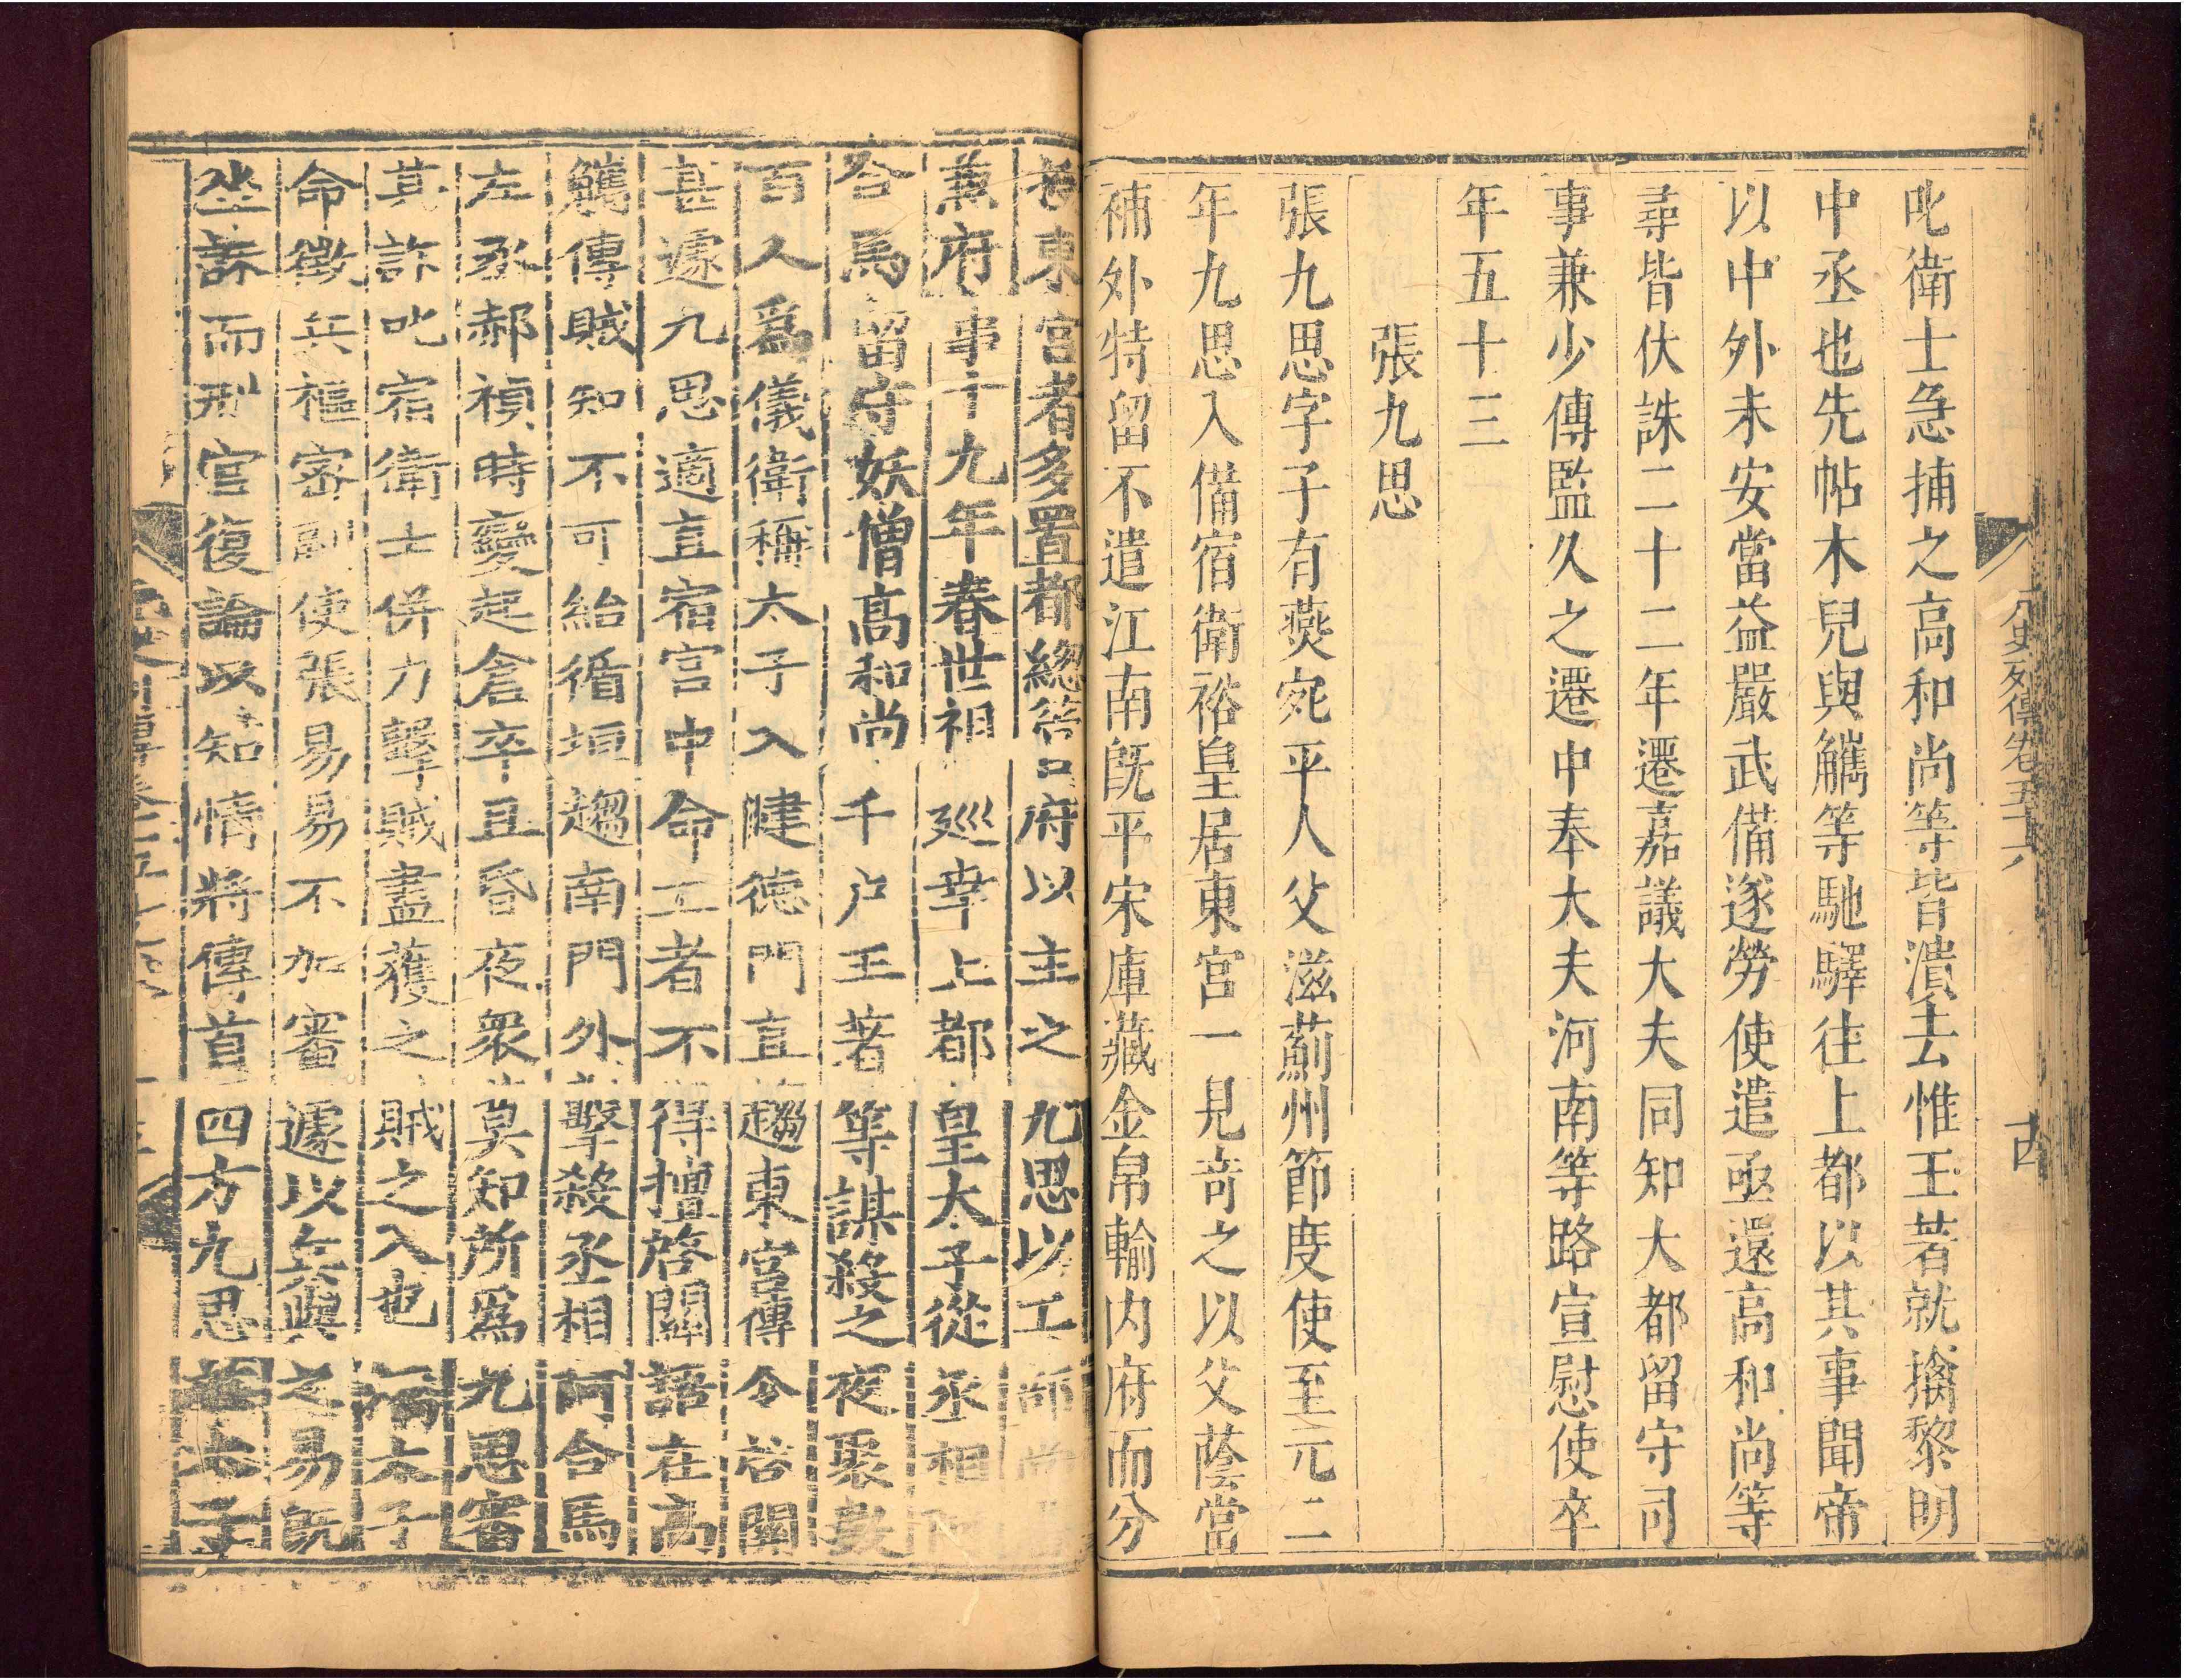 元史列傳卷五十六
十四
叱衛士急捕之高和尚等皆潰去惟王著就擒黎明
中丞也先帖木兒與觿等馳驛往上都以其事聞帝
以中外未安當益嚴武備遂勞使遣亟還高和尚等
尋皆伏誅二十二年遷嘉議大夫同知大都留守司
事兼少傅監久之遷中奉大夫河南等路宣慰使卒
年五十三
張九思
張九思字子有燕宛平人父滋薊州節度使至元二
年九思入備宿衛裕皇居東宮一見奇之以父蔭當
補外特留不遣江南旣平宋庫藏金帛輸內府而分
東宮者多置都總管府以主之九思以工部尚
兼府事十九年春世祖巡幸上都皇太子從丞相
合馬留守妖僧高和尚千戶王著等謀殺之夜聚數
百人爲儀衛稱太子入健德門直趨東宮傳令啓關
甚遽九思適直宿宮中命工者不得擅啓關語在高
觿傳賊知不可紿循垣趨南門外擊殺丞相阿合馬
左丞郝禎時變起倉卒且昏夜衆莫知所爲九思審
其詐叱宿衛士併力擊賊盡獲之賊之入也 太子
命徵兵樞密副使張易易不加審遽以兵與之易旣
坐誅而刑官復論以知情將傳首四方九思 太子